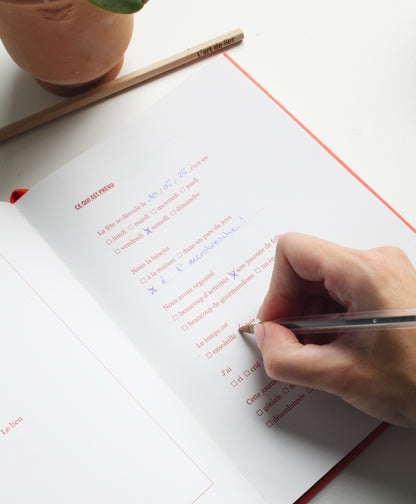 l'art de lier
CE QUI EST PRÉVU
La fête se déroule le 10/05/05, c'est un
☐ lundi ☐ mardi ☐ mercredi ☐ jeudi
☐ vendredi ☒ samedi ☐ dimanche
Nous la faisons
☐ à la maison ☐ dans un parc de jeux
☒ à l'accrobranche !
Nous avons organisé
☐ beaucoup d'activités ☒ une journée de folie
☐ beaucoup de gourmandises ☐ un
Le temps est
☐ ensoleillé
J'ai
☐ ri ☐ crié
Cette journée
☐ géniale ☐
☐ désordonnée ☐
Le lieu